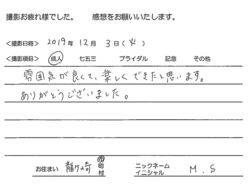 撮影お疲れ様でした。 感想をお願いいたします。
<撮影日時> 2019年 12月 3日(火)
<撮影項目> 成人 七五三 ブライダル 記念 その他
雰囲気が良くて、楽しくできたと思います。
ありがとうございました。
お住まい 龍ケ崎 市町村 ニックネーム イニシャル M.S